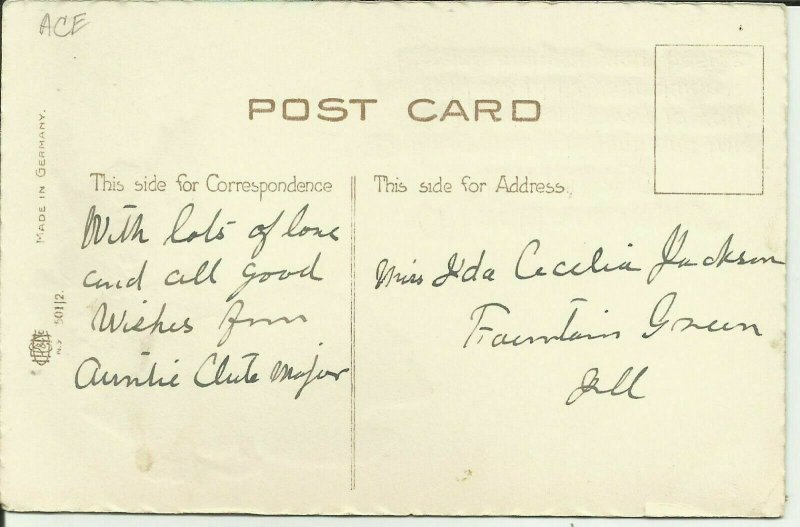 ACE
POST CARD
MADE IN GERMANY.
501/2.
This side for Correspondence
This side for Address.
With lots of love
and all good
Wishes from
Auntie Clute Major
Miss Ida Cecelia Jackson
Fountain Green
Ill